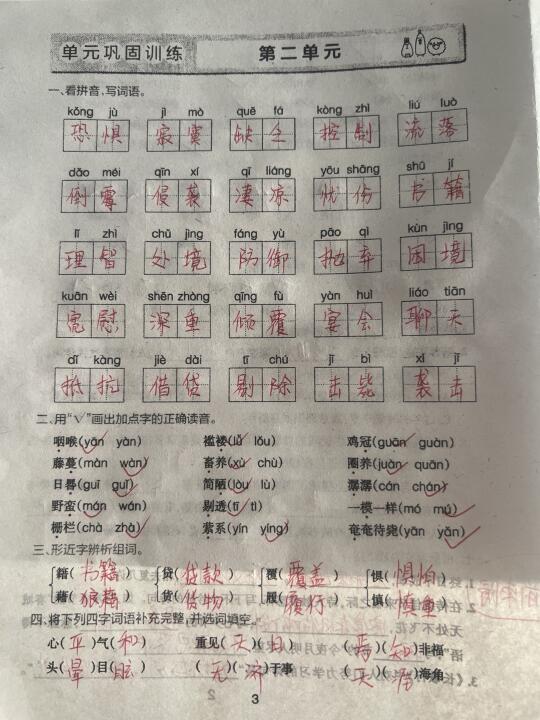 单元巩固训练 第二单元
一、看拼音,写词语。
kǒng jù jì mò quē fá kòng zhì liú luò
恐惧 寂寞 缺乏 控制 流落
dǎo méi qīn xí qī liáng yōu shāng shū jí
倒霉 侵袭 凄凉 忧伤 书籍
lǐ zhì chǔ jìng fáng yù pāo qì kùn jìng
理智 处境 防御 抛弃 困境
kuān wèi shēn zhòng qīng fù yàn huì liáo tiān
宽慰 深重 倾覆 宴会 聊天
dǐ kàng jiè dài tī chú jī bì xí jī
抵抗 借贷 剔除 击毙 袭击
二、用“√”画出加点字的正确读音。
咽喉(yān yàn) 褴褛(lǚ lǒu) 鸡冠(guān guàn)
藤蔓(màn wàn) 畜养(xù chù) 圈养(juàn quān)
日晷(guī guǐ) 简陋(lòu lù) 潺潺(cán chán)
野蛮(mán wán) 剔透(tī tì) 一模一样(mó mú)
栅栏(chà zhà) 萦系(yín yíng) 奄奄待毙(yān yǎn)
三、形近字辨析组词。
籍(书籍) 贷(贷款) 覆(覆盖) 惧(惧怕)
藉(狼藉) 货(货物) 履(履行) 慎(慎重)
四、将下列四字词语补充完整,并选词填空。
心(平)气(和) 重见(天)(日) (焉)(知)非福
头(晕)目(眩) (无)(济)于事 (天)(涯)海角
3